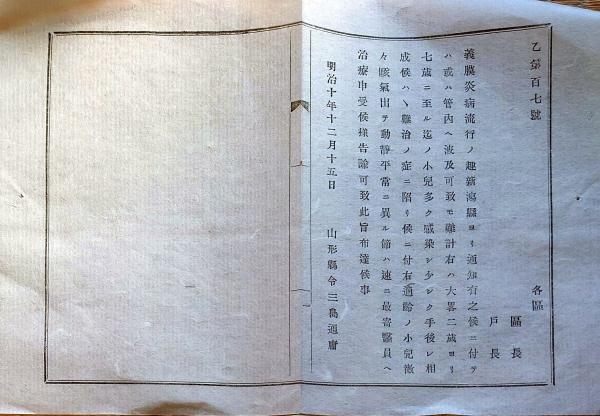 乙第百七號
各區
區長
戸長
義膜炎病流行ノ趣新潟縣ヨリ通知有之候ニ付テ
ハ或ハ管內ヘ波及可致モ難計右ハ大畧二歲ヨリ
七歲ニ至ル迄ノ小兒多ク感染シ少シク手後レ相
成候ハヽ難治ノ症ニ陷リ候ニ付右適齡ノ小兒微
々咳氣出テ動靜平常ニ異ル節ハ速ニ最寄醫員ヘ
治療申受候樣告諭可致此旨布達候事
明治十年十二月十五日
山形縣令三島通庸